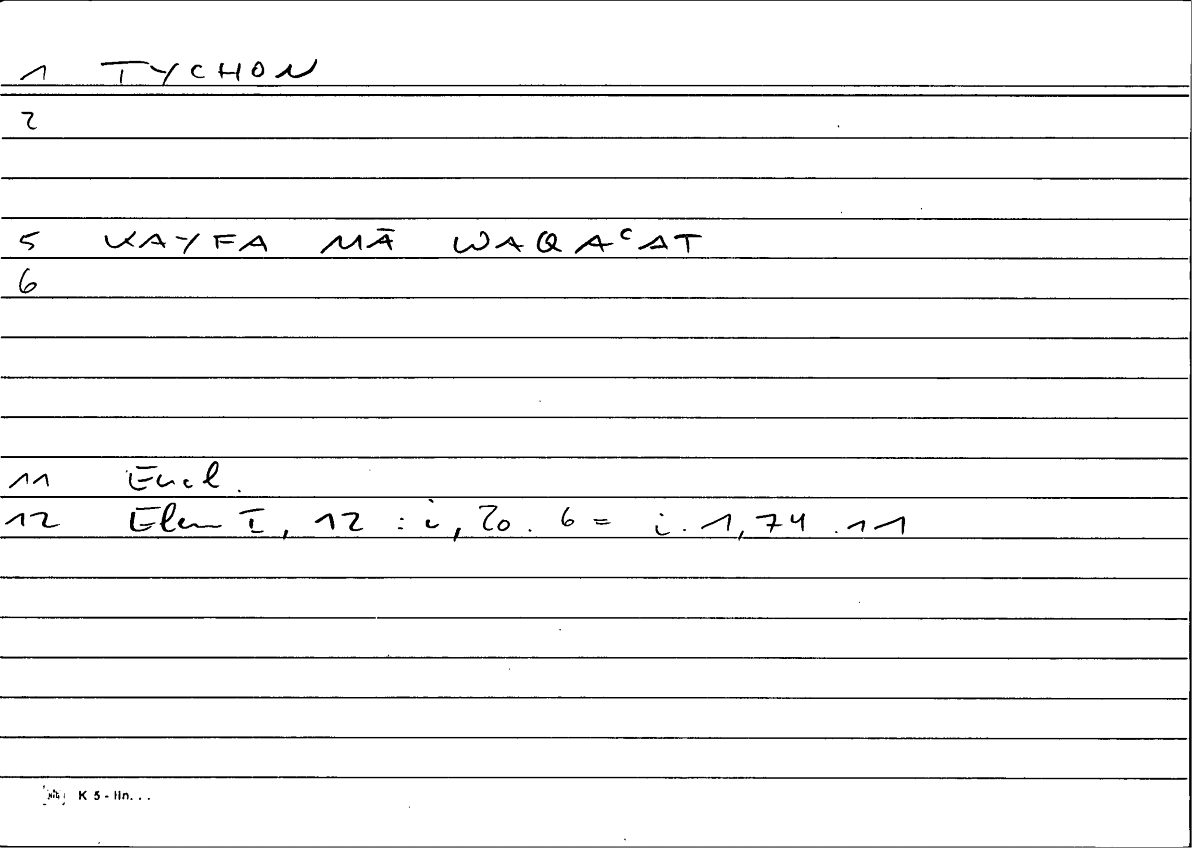 1 TYCHON
2
5 KAYFA MĀ WAQAᶜAT
6
11 Eucl.
12 Elem I, 12 : i, 20. 6 = i. 1,74 .11
K 5 - lin. . .